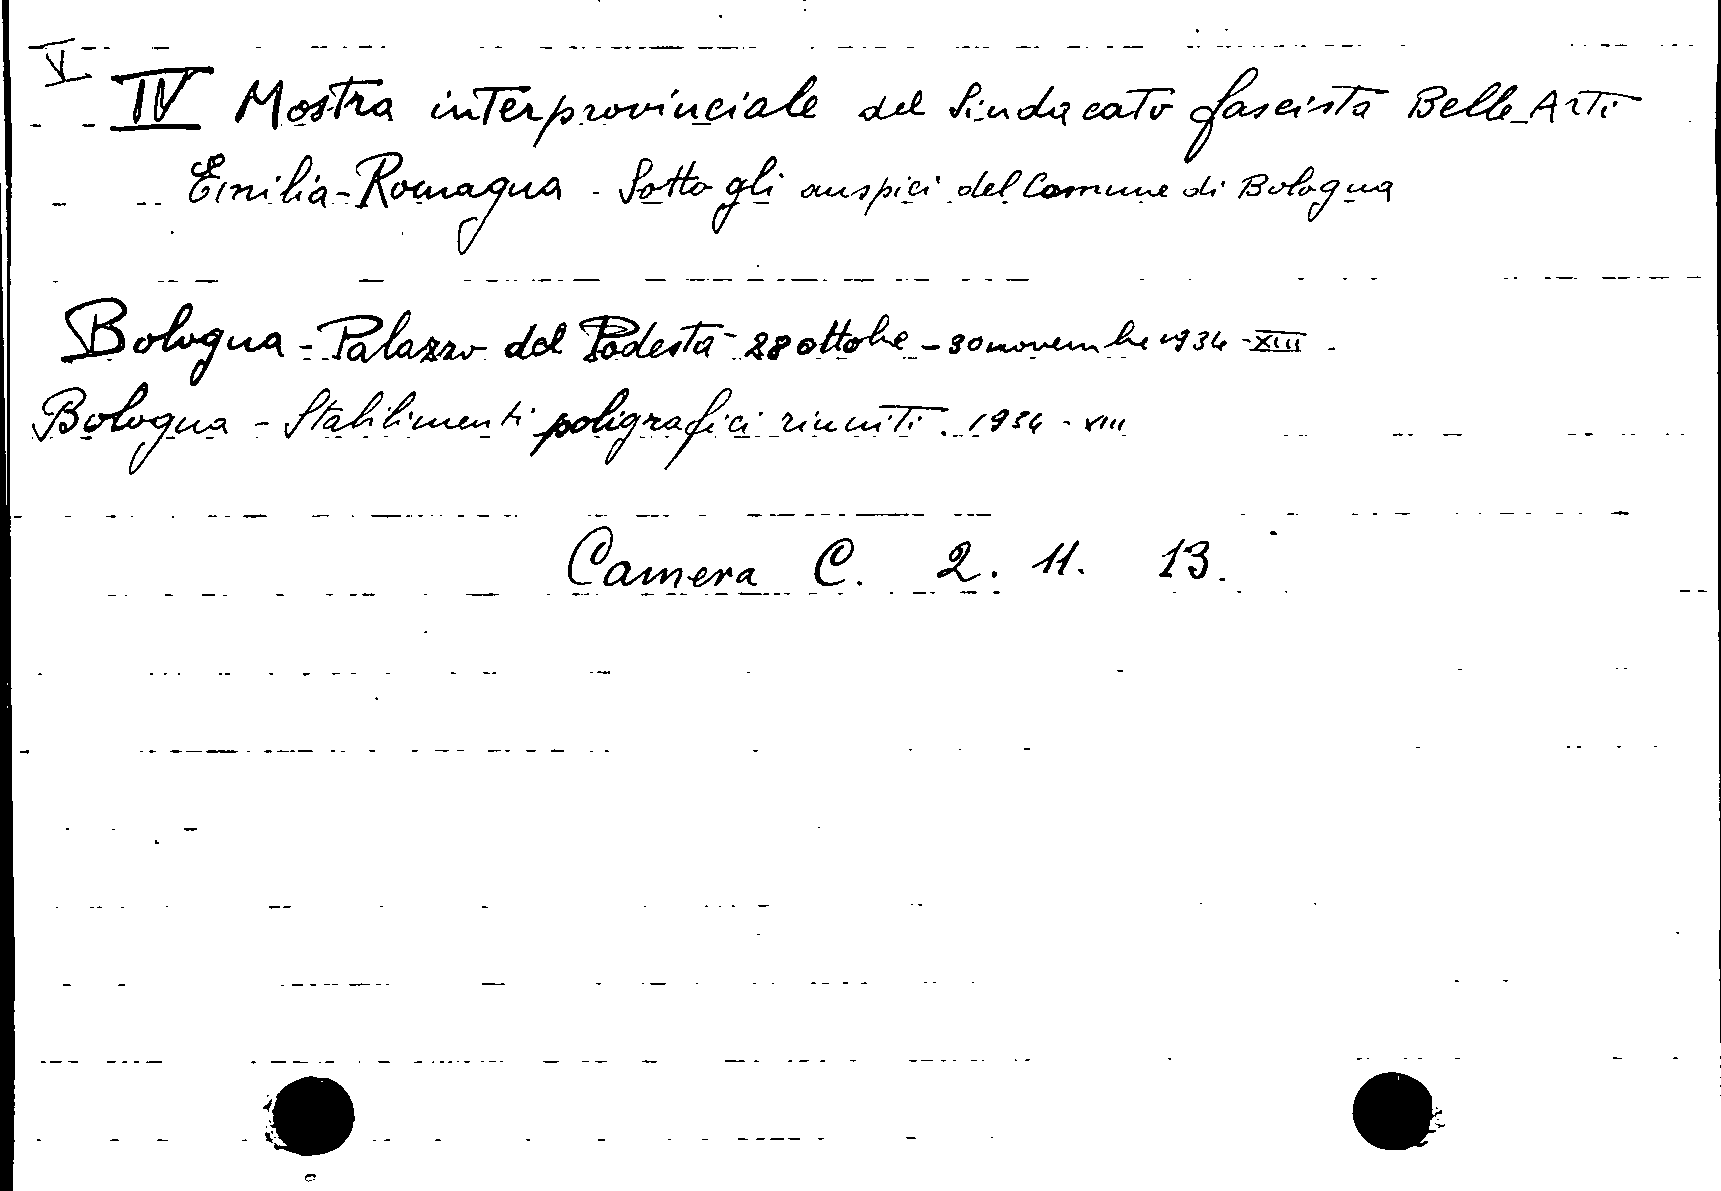 V
IV Mostra interprovinciale del Sindacato fascista Belle Arti
Emilia-Romagna - Sotto gli auspici del Comune di Bologna
Bologna - Palazzo del Podestà - 28 ottobre - 30 novembre 1934 - XIII.
Bologna - Stabilimenti poligrafici riuniti. 1934 - XIII
Camera C. 2. 11. 13.